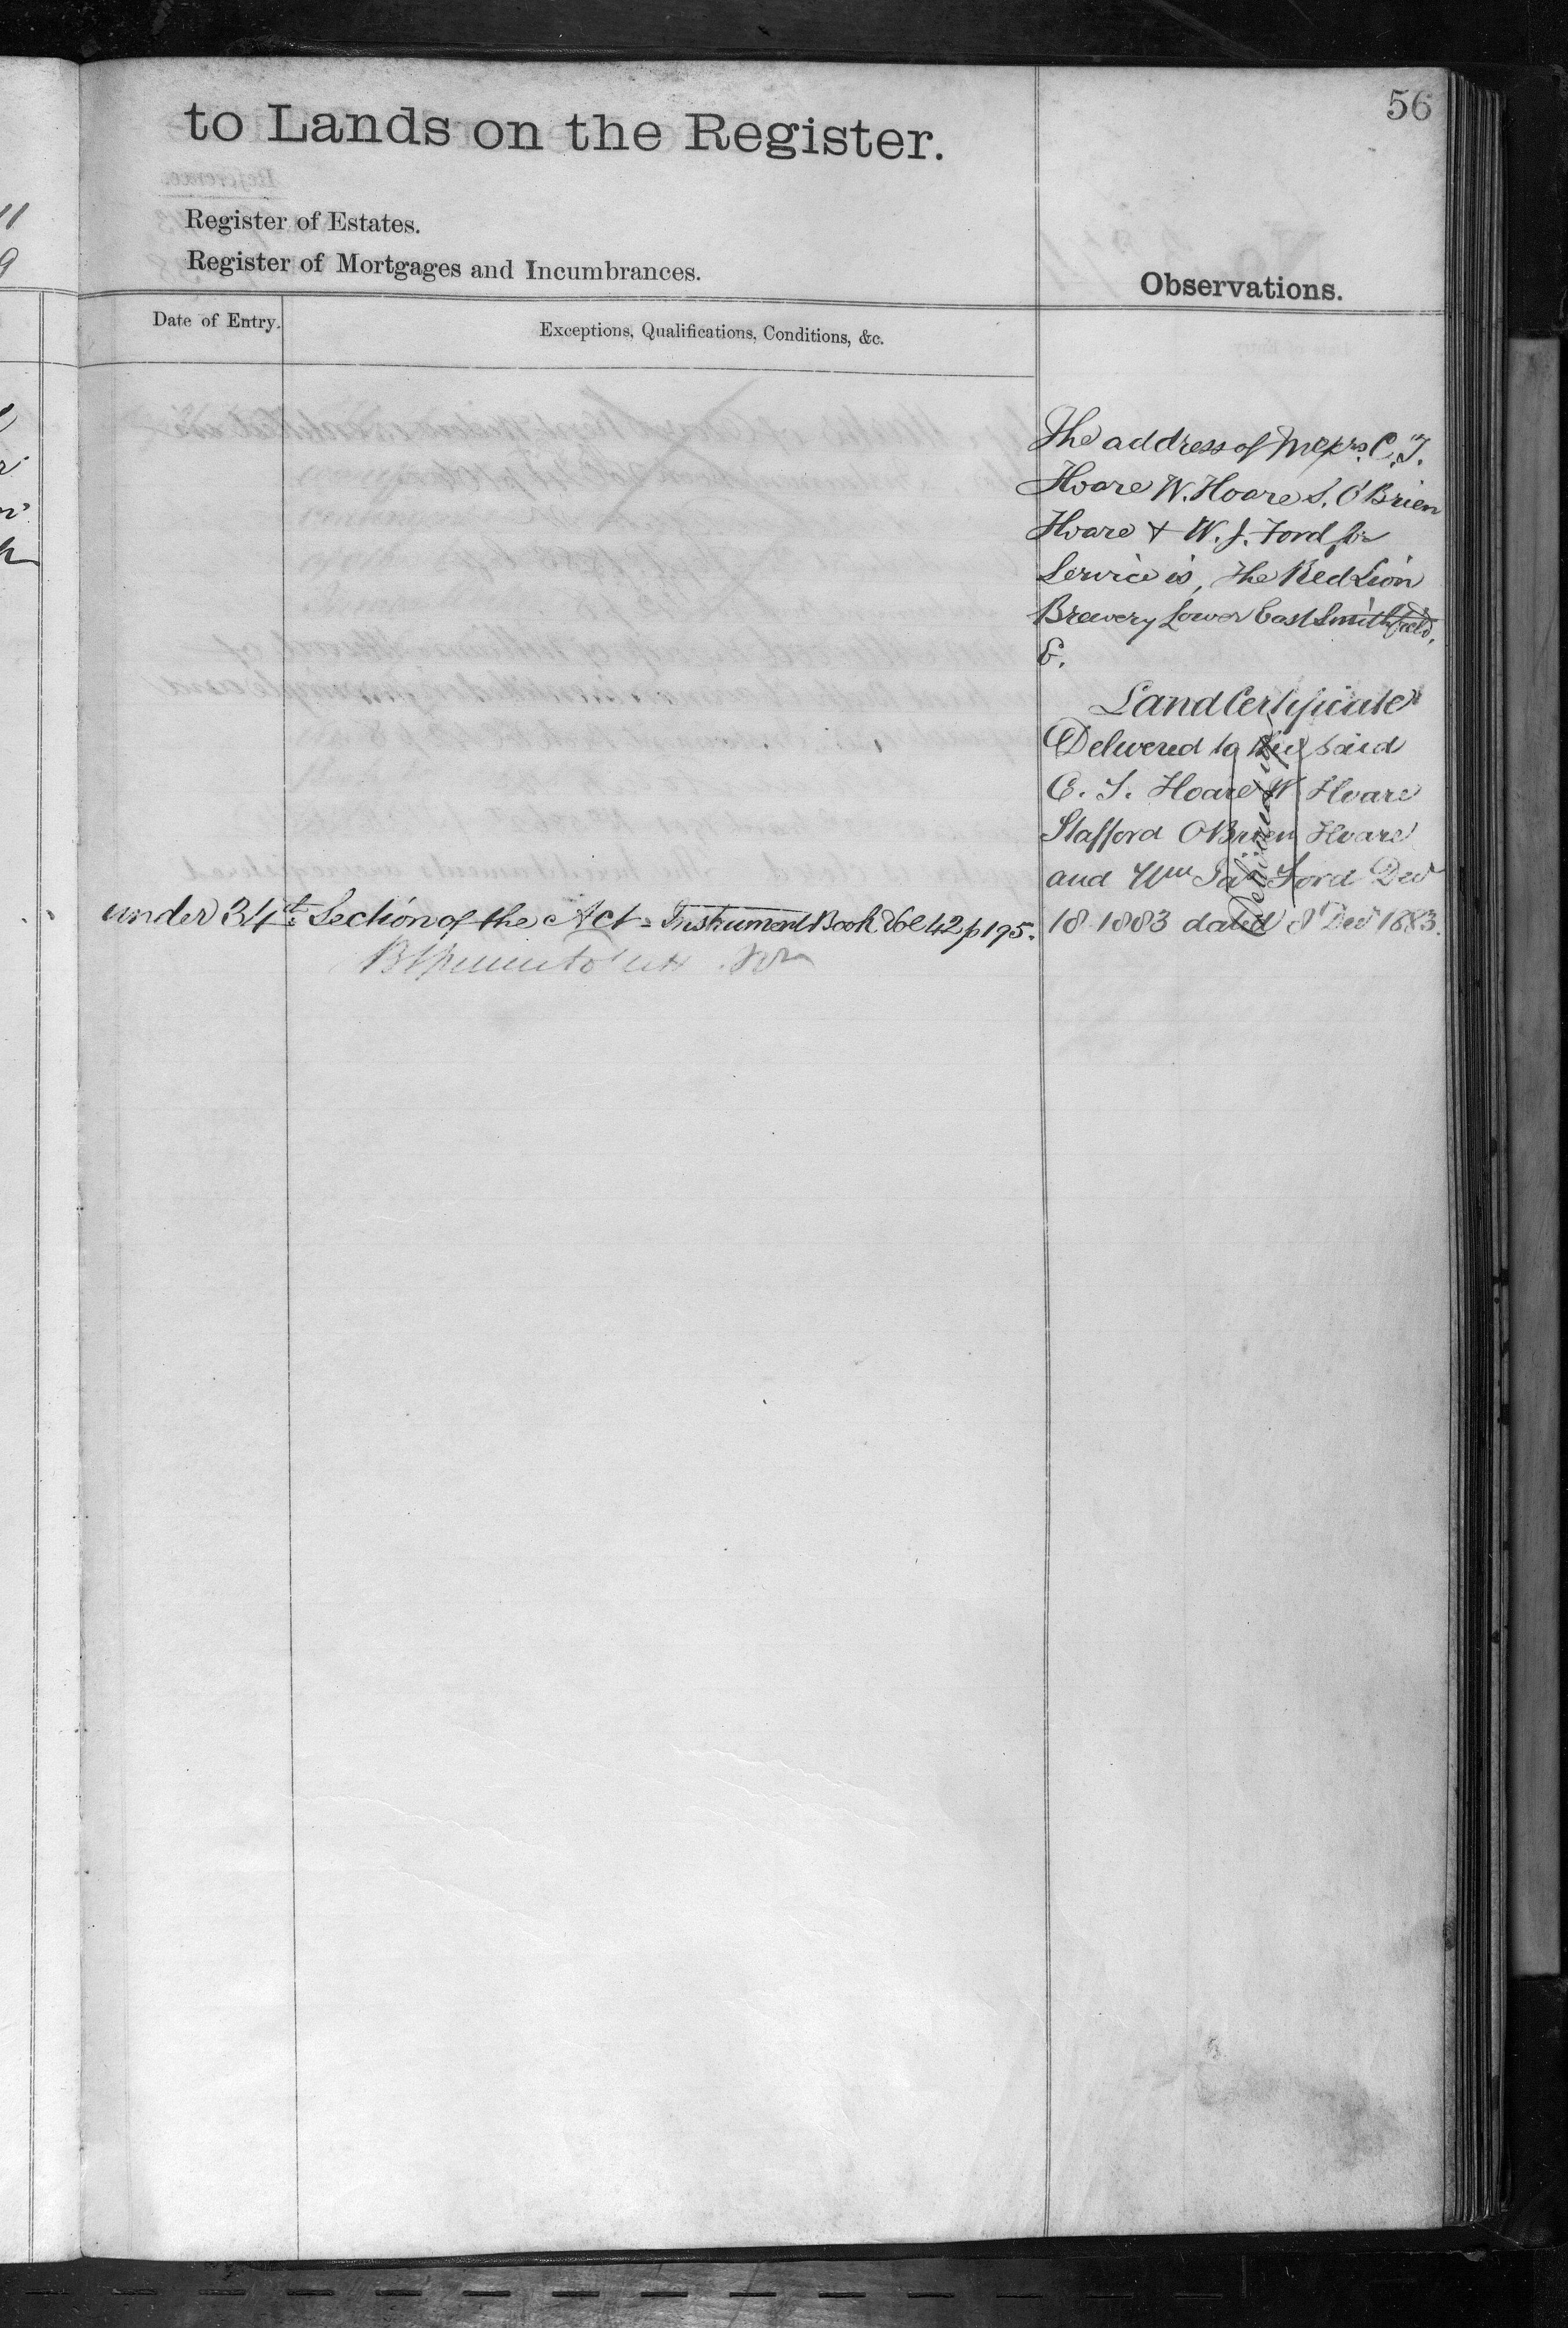 56
to Lands on the Register.
Register of Estates.
Register of Mortgages and Incumbrances.
Observations.
Date of Entry.
Exceptions, Qualifications, Conditions, &c.
The address of Messrs. C. T.
Hoare W. Hoare S. O'Brien
Hoare & W. J. Ford for
Service is, the Red Lion
Brewery Lower East Smithfield,
E.
Land Certificate
Delivered to the said
C. T. Hoare W Hoare
Stafford O'Brien Hoare
and Wm Jas Ford Decr
18 1883 dated 8 Decr 1883.
under 34th Section of the Act - Instrument Book Vol 42 p 195.